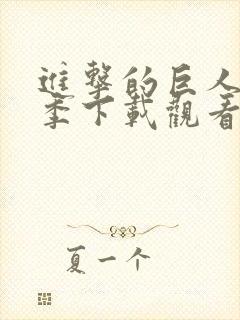 進擊的巨人
季下載觀看
夏一个